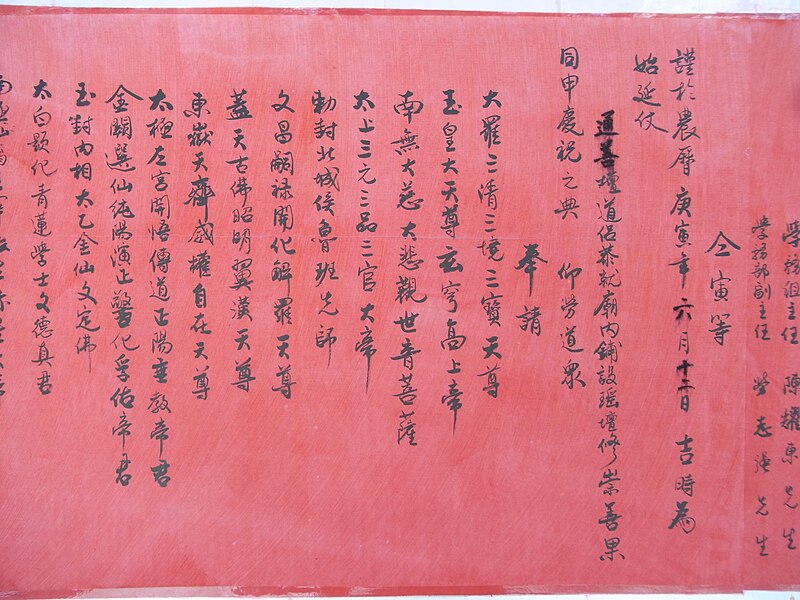 學務組主任 陳耀東先生
學務部副主任 勞志強先生
仝寅等
謹於農曆庚寅年六月十二日吉時為
始延仗
通善壇道侶恭就廟內鋪設瑶壇修崇善果
同申慶祝之典 仰勞道眾
奉請
大羅三清三境三寶天尊
玉皇大天尊玄穹高上帝
南無大慈大悲觀世音菩薩
太上三元三品三官大帝
勅封北城侯魯班先師
文昌嗣禄開化觧羅天尊
蓋天古佛昭明翼漢天尊
東嶽天齊威權自在天尊
太極左宮開悟傳道正陽垂教帝君
金闕選仙純陽演正警化孚佑帝君
玉對內相太乙金仙文定佛
太白顯化青蓮學士文德真君